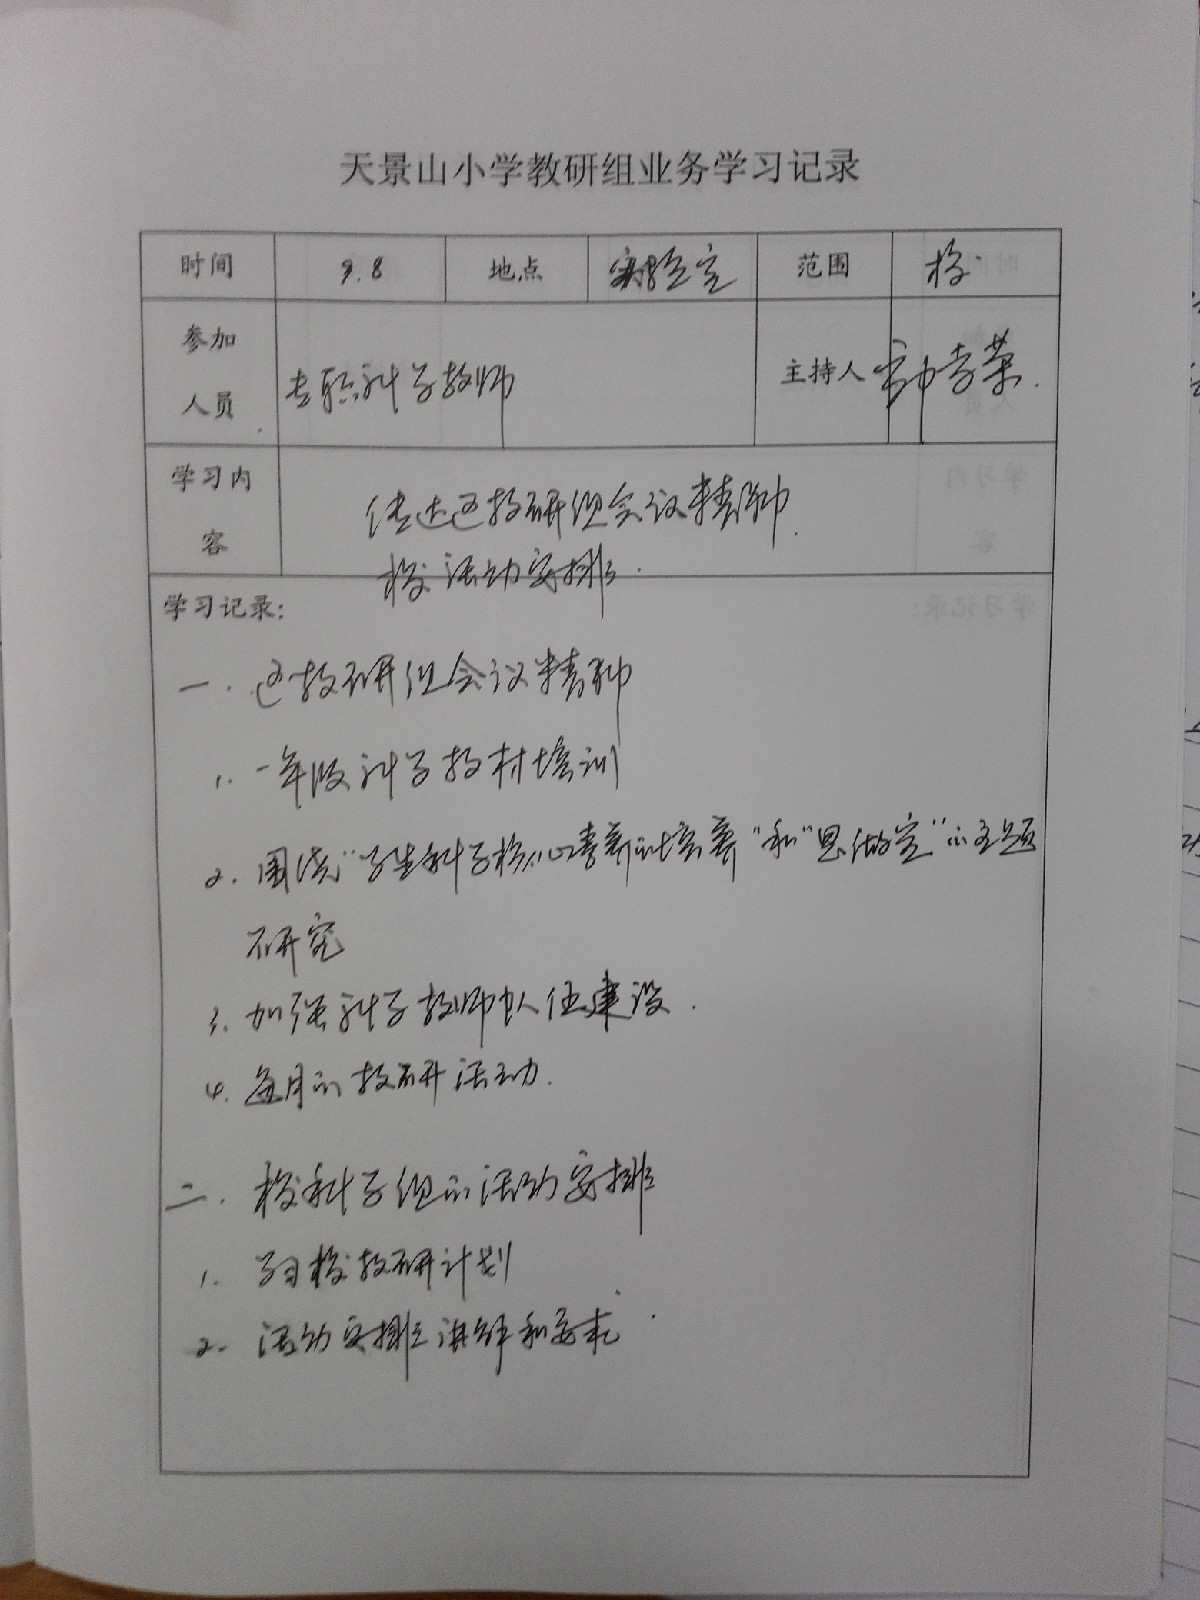 天景山小学教研组业务学习记录
时间 9.8 地点 实验室 范围 校
参加人员 专职科学教师 主持人
学习内容 传达区教研组会议精神
校活动安排.
学习记录:
一. 区教研组会议精神
1. 一年级科学教材培训
2. 围绕“学生科学核心素养的培养”和“思做室”的主题
研究
3. 加强科学教师队伍建设.
4. 每月的教研活动.
二. 校科学组的活动安排
1. 学习校教研计划
2. 活动安排讲解和要求.